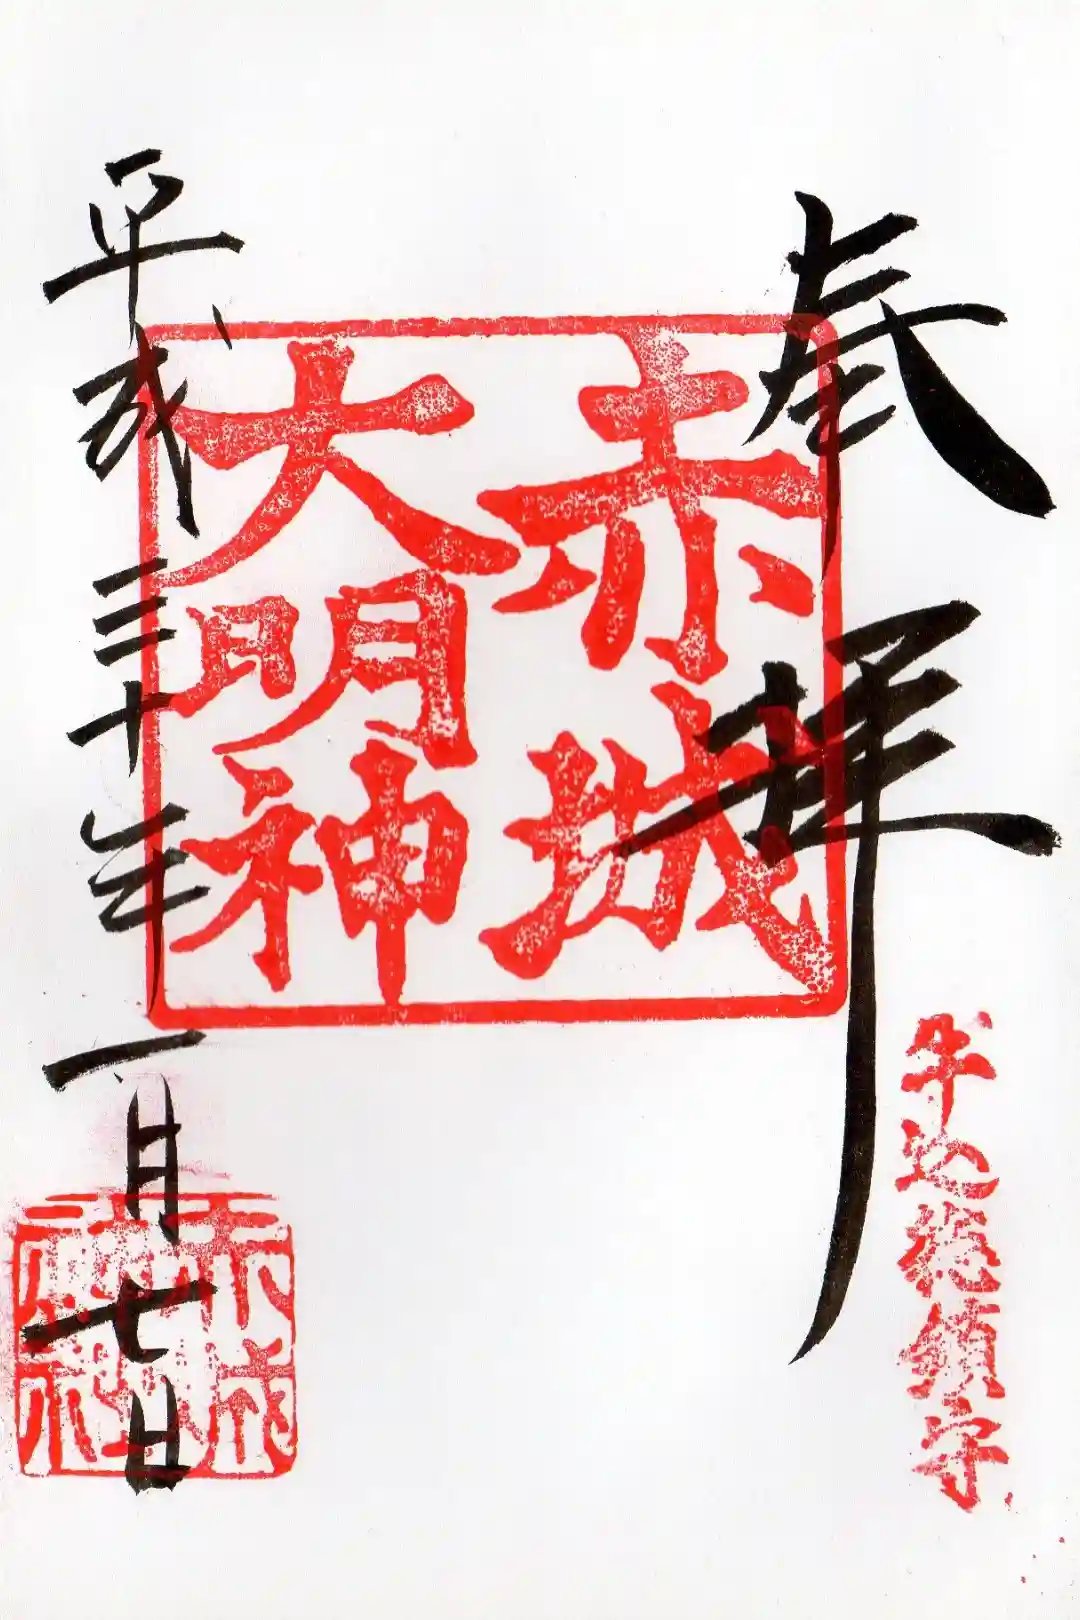 奉拝
牛込総鎮守
赤城
大明神
平成三十年一月七日